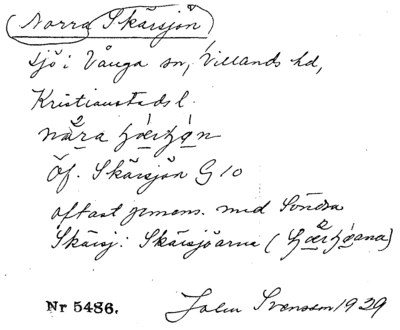 Norra Skärsjön
sjö i Vånga sn, Villands hd,
Kristianstads l.
Öf. Skärsjön G 10
oftast gemens. med Södra
Skärsj: Skärsjöarna (
Nr 5486. John Svensson 1929